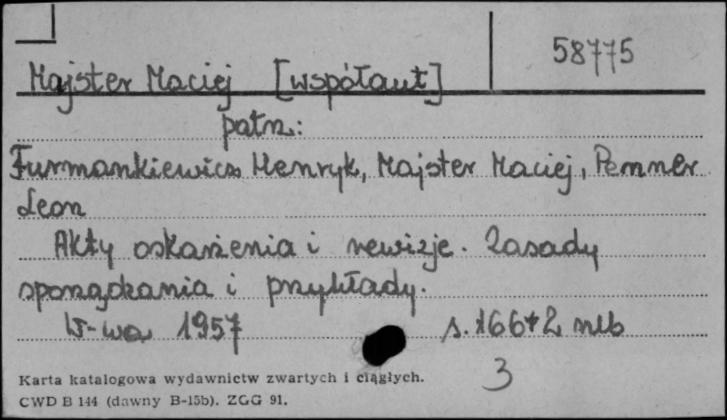 58775
Majster Maciej [współaut]
patrz:
Furmankiewicz Henryk, Majster Maciej, Pemner
Leon
Akty oskarżenia i rewizje. Zasady
sporządzania i przykłady.
W-wa 1957 s. 166+2 nlb
Karta katalogowa wydawnictw zwartych i ciągłych. 3
CWD B 144 (dawny B-15b). ZGG 91.